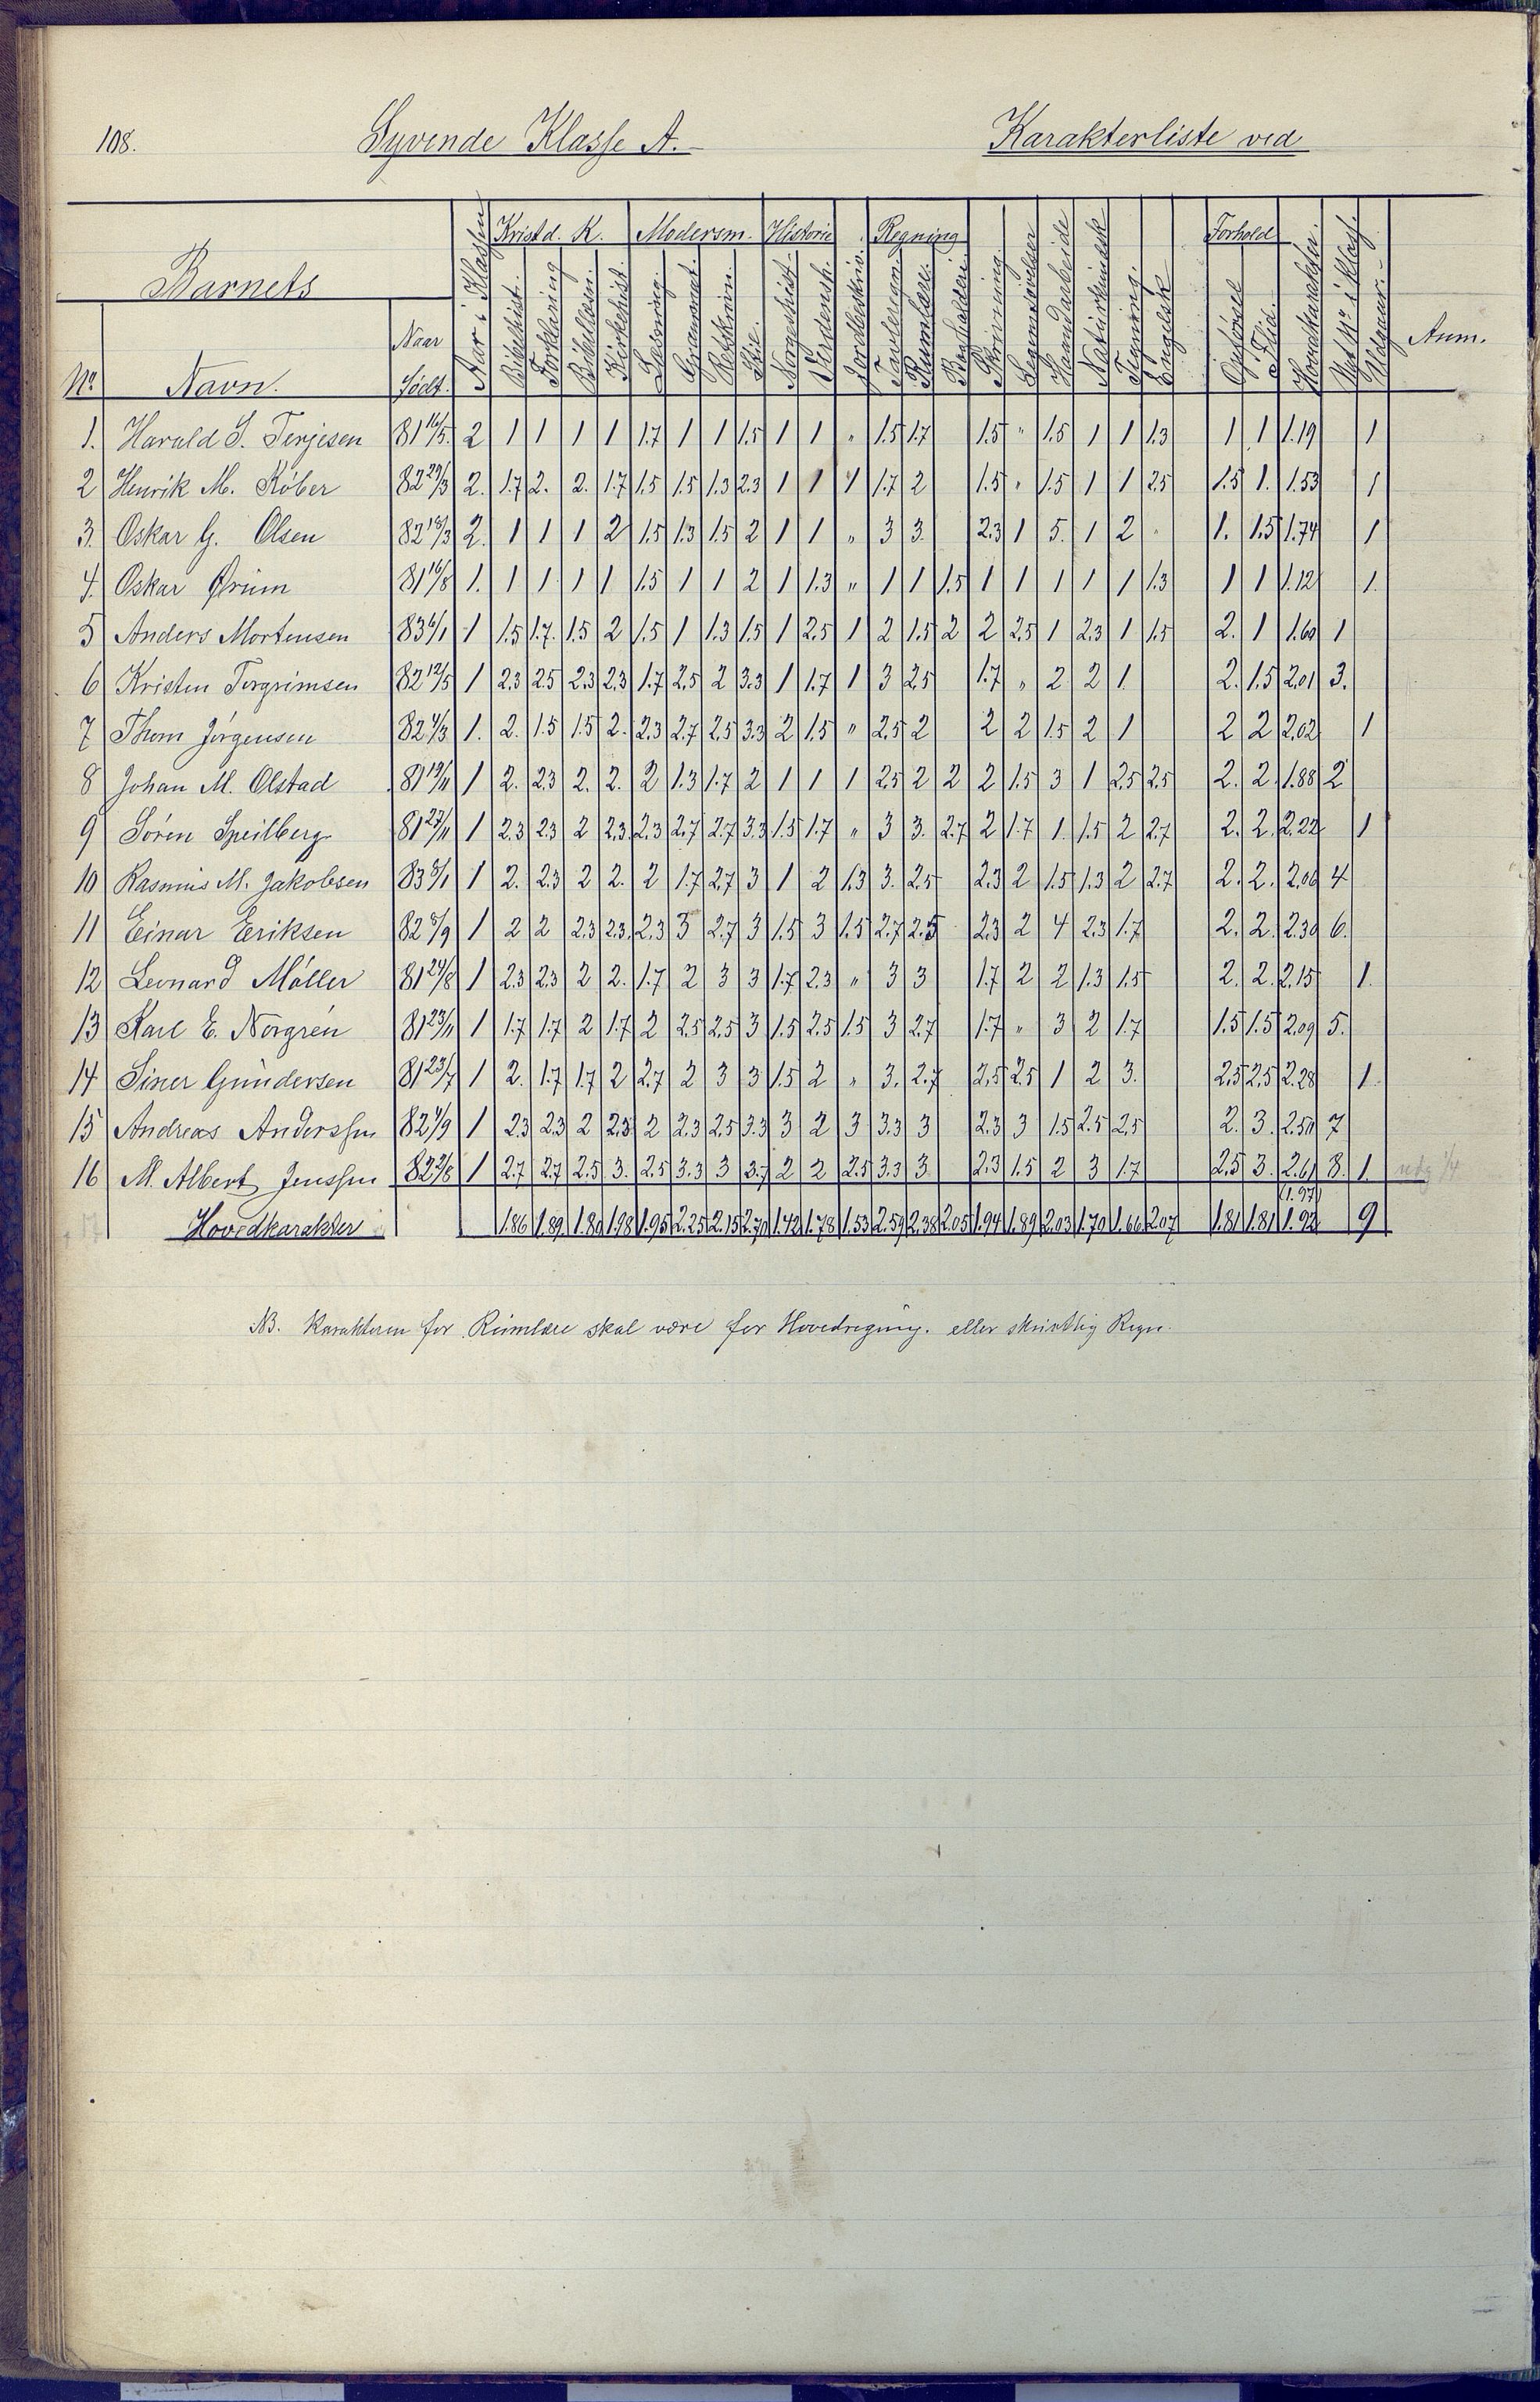 108. Syvende Klasse A. Karakterliste ved
Barnets Aar i Klassen Kristd. K. Modersm. Historie Jordbeskriv. Regning Skrivning Legemsøvelser Haandarbeide Naturkundsk Tegning Engelsk Forhold Hovedkarakter Anm.
No Navn. Naar født. Bibelhist. Forklaring Bibellæsn. Kirkehist. Læsning Grammat. Retskrivn. Stil Norgeshist. Verdensh. Tavleregn. Rumlære. Boghalderi Opførsel Flid Nyt No i Klas. Udgaar.
1. Harald S. Terjesen 81 16/5. 2 1 1 1 1 1.7 1 1 1.5 1 1 " 1.5 1.7 1.5 " 1.5 1 1 1.3 1 1 1.19 1
2 Henrik M. Köber 82 29/3 2. 1.7 2. 2. 1.7 1.5 1.5 1.3 2.3 1 1 1 1.7 2 1.5 " 1.5 1 1 2.5 1.5 1. 1.53 1
3. Oskar G. Olsen 82 18/3 2. 1 1 1 2 1.5 1.3 1.5 2 1 1 " 3 3. 2.3 1 5. 1 2 " 1. 1.5 1.74 1
4. Oskar Örum 81 16/8 1. 1 1 1 1 1.5 1 1 2 1 1.3 " 1 1 1.5 1 1 1 1 1 1.3 1 1 1.12 1.
5 Anders Mortensen 83 6/1 1 1.5 1.7. 1.5 2 1.5 1 1.3 1.5 1 2.5 1 2 1.5 2 2 2.5 1 2.3 1 1.5 2. 1 1.60 1
6 Kristen Torgrimsen 82 12/5 1 2.3 2.5 2.3 2.3 1.7 2.5 2 3.3 1 1.7 1 3 2.5 1.7 " 2 2 1. 2. 1.5 2.01 3.
7 Thom Jörgensen 82 4/3 1. 2. 1.5 1.5 2. 2.3 2.7 2.5 3.3 2 1.5 " 2.5 2 2 2 1.5 2 1 2 2 2.02 1
8 Johan M. Olstad 81 19/11 1 2. 2.3 2. 2. 2 1.3 1.7 2 1 1 1 2.5 2 2 2 1.5 3 1 2.5 2.5 2. 2. 1.88 2
9 Sören Speilberg 81 27/11 1 2.3 2.3 2 2.3. 2.3 2.7 2.7 3.3 1.5 1.7 " 3 3. 2.7 2 1.7 1. 1.5 2 2.7 2. 2. 2.22 1
10 Rasmus M. Jakobsen 83 8/1 1 2. 2.3 2 2. 2 1.7 2.7 3 1 2 1.3 3. 2.5 2.3 2 1.5 1.3 2 2.7 2. 2. 2.06 4
11 Einar Eriksen 82 8/9 1 2 2 2.3 2.3. 2.3 3 2.7 3 1.5 3 1.5 2.7 2.5 2.3 2 4 2.3 1.7 2. 2. 2.30 6.
12 Leonard Möller 81 24/8 1 2.3 2.3 2 2. 1.7 2 3 3 1.7 2.3 " 3 3 1.7 2 2 1.3 1.5 2. 2. 2.15 1.
13 Karl E. Norgrén 81 23/11 1 1.7 1.7 2 1.7 2 2.5 2.5 3 1.5 2.5 1.5 3 2.7 1.7 " 3 2 1.7 1.5 1.5 2.09 5.
14 Siner Gundersen 81 23/7 1 2. 1.7 1.7 2 2.7 2 3 3 1.5 2 " 3. 2.7 2.5 2.5 1 2 3. 2.5 2.5 2.28 1.
15 Andreas Anderssen 82 4/9 1 2.3 2.3 2 2.3 2 2.3 2.5 3.3 3 2 3 3.3 3 2.3 3 1.5 2.5 2.5 2. 3. 2.50 7
16 M. Albert Jenssen 82 2/8 1 2.7 2.7 2.5 3. 2.5 3.3 3 3.7 2 2 2.5 3.3 3. 2.3 1.5 2 3 1.7 2.5 3. 2.61 8. 1. udg 1/4
(1.97)
Hovedkarakter 1.86 1.89. 1.80 1.98 1.95 2.25 2.15 2.70 1.42 1.78 1.53 2.59 2.38 2.05 1.94 1.89 2.03 1.70 1.66 2.07 1.81 1.81 1.92 9
NB. Karakteren for Rumlære skal være for Hovedregning. eller skriftlig Regn.